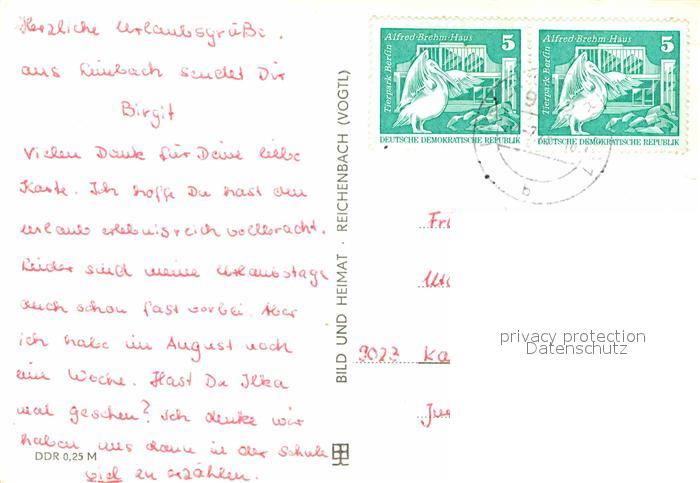 Herzliche Urlaubsgrüße
aus Limbach sendet Dir
Birgit
Vielen Dank für Deine liebe
Karte. Ich hoffe Du hast den
Urlaub erlebnisreich vollbracht.
Leider sind meine Urlaubstage
auch schon fast vorbei. Aber
ich habe im August noch
eine Woche. Hast Du Ilka
mal gesehen? Ich denke wir
haben uns dann in der Schule
viel zu erzählen.
DDR 0,25 M
BILD UND HEIMAT · REICHENBACH (VOGTL)
Alfred-Brehm-Haus 5
Tierpark Berlin
DEUTSCHE DEMOKRATISCHE REPUBLIK
Alfred-Brehm-Haus 5
Tierpark Berlin
DEUTSCHE DEMOKRATISCHE REPUBLIK
b
9023 Ka
privacy protection
Datenschutz